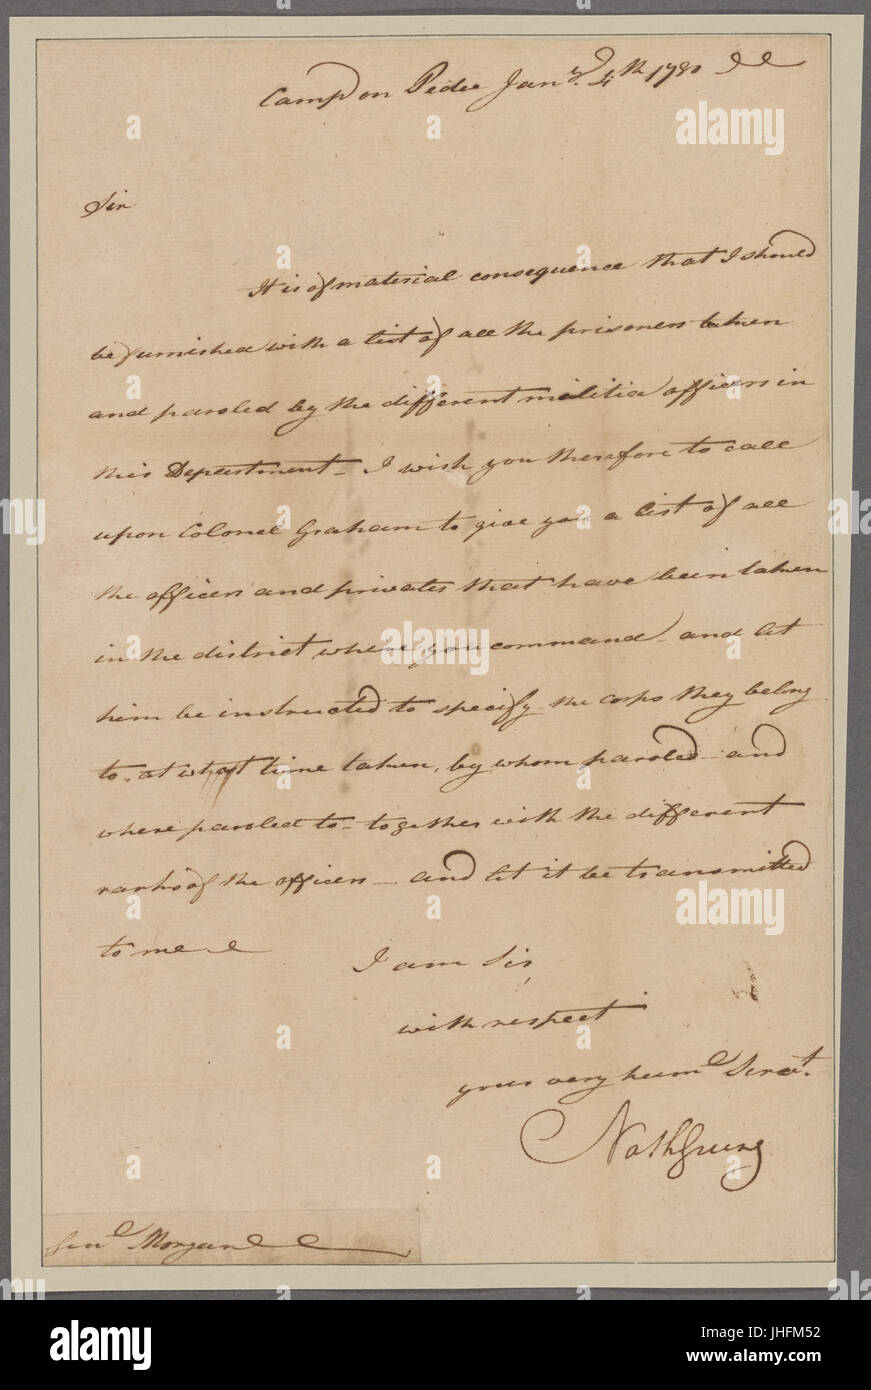 Camp on Pedee Jany. 4th 1780
Sir
It is of material consequence that I should
be furnished with a list of all the prisoners taken
and paroled by the different militia officers in
this Department - I wish you therefore to call
upon Colonel Graham to give you a list of all
the officers and privates that have been taken
in the district where you command - and let
him be instructed to specify the corps they belong
to, at what time taken, by whom paroled - and
where paroled to - together with the different
ranks of the officers - and let it be transmitted
to me
I am Sir,
with respect
your very humle Servt.
NathGreene
Genl Morgan
alamy
Image ID: JHFM52
www.alamy.com